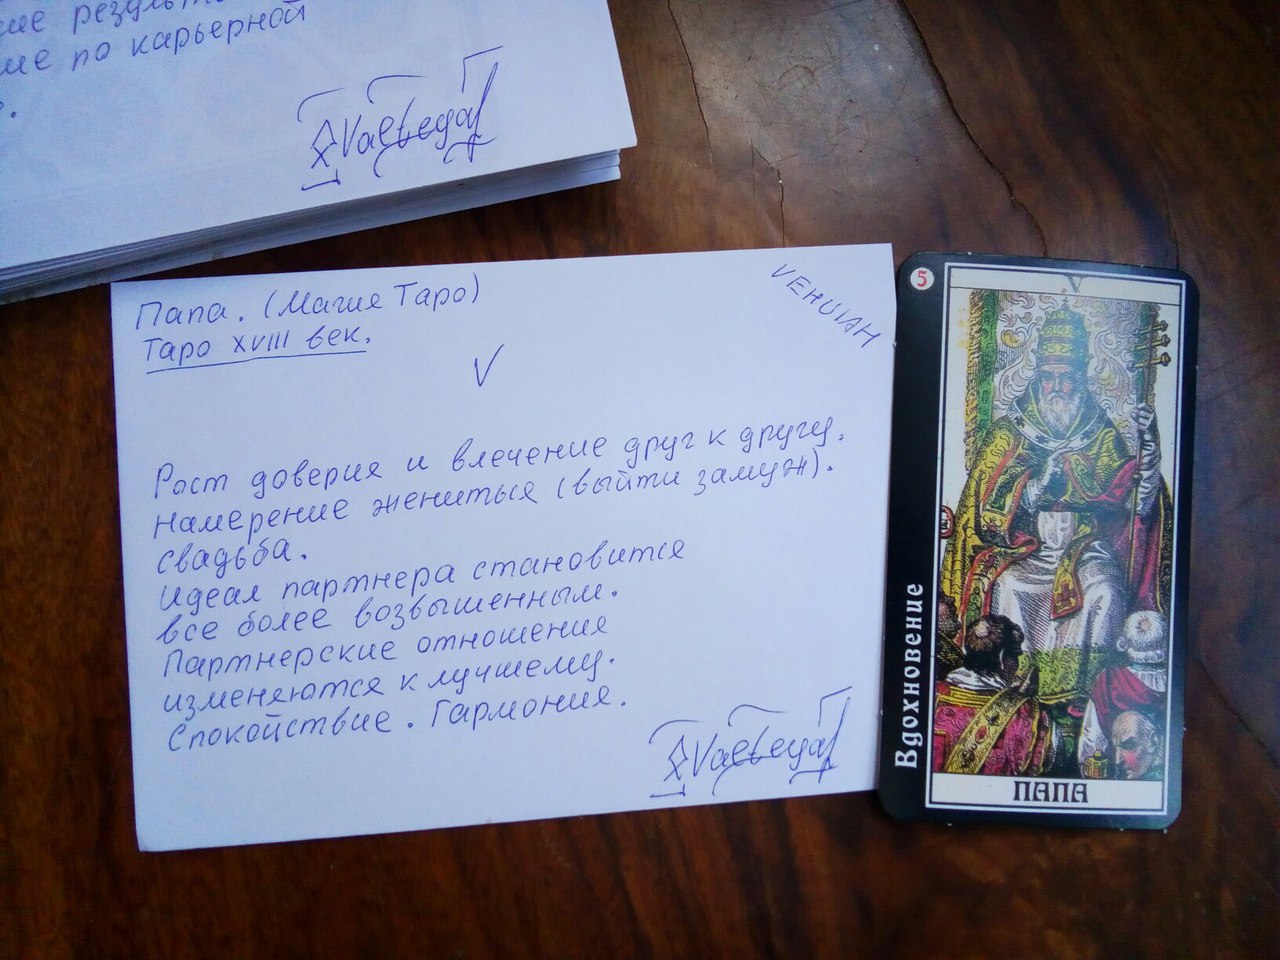 по карьерной
Valtegal
Папа. (Магия Таро)
Таро XVIII век.
VEHUIAH
V
Рост доверия и влечение друг к другу.
Намерение жениться (выйти замуж).
Свадьба.
Идеал партнера становится
все более возвышенным.
Партнерские отношения
изменяются к лучшему.
Спокойствие. Гармония.
Valtegal
5
V
Вдохновение
ПАПА